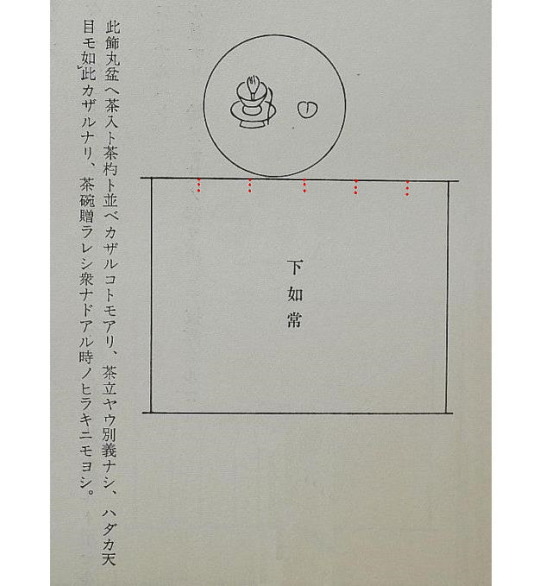 下如常
此飾丸盆ヘ茶入ト茶杓ト並ベカザルコトモアリ、茶立ヤウ別義ナシ、ハダカ天
目モ如此カザルナリ、茶碗贈ラレシ衆ナドアル時ノヒラキニモヨシ。